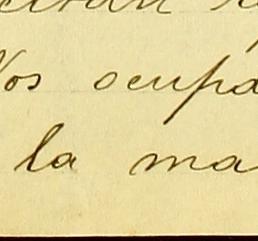 Nos ocupa
la ma